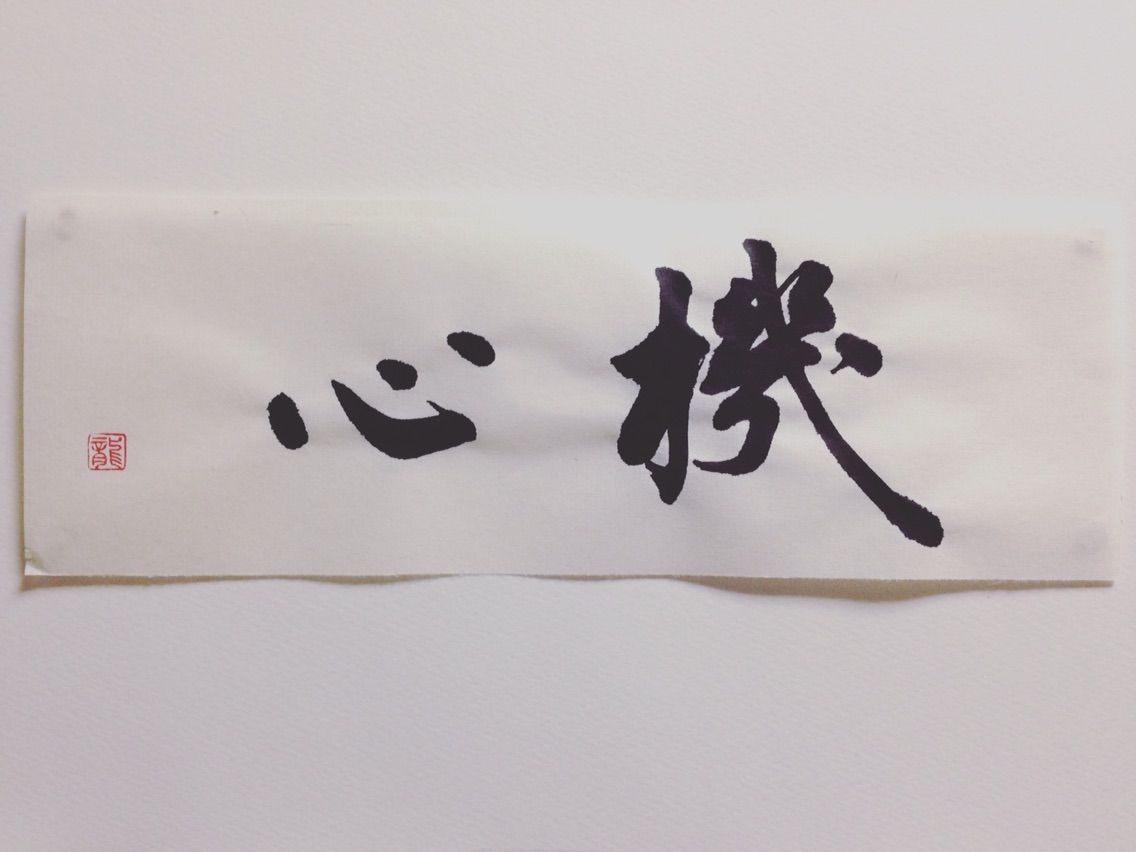 機心
龍